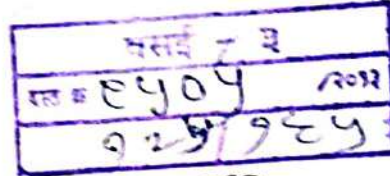 वसई - २
दस्त क्र ६५०५ /२०१२
१२५ १६५